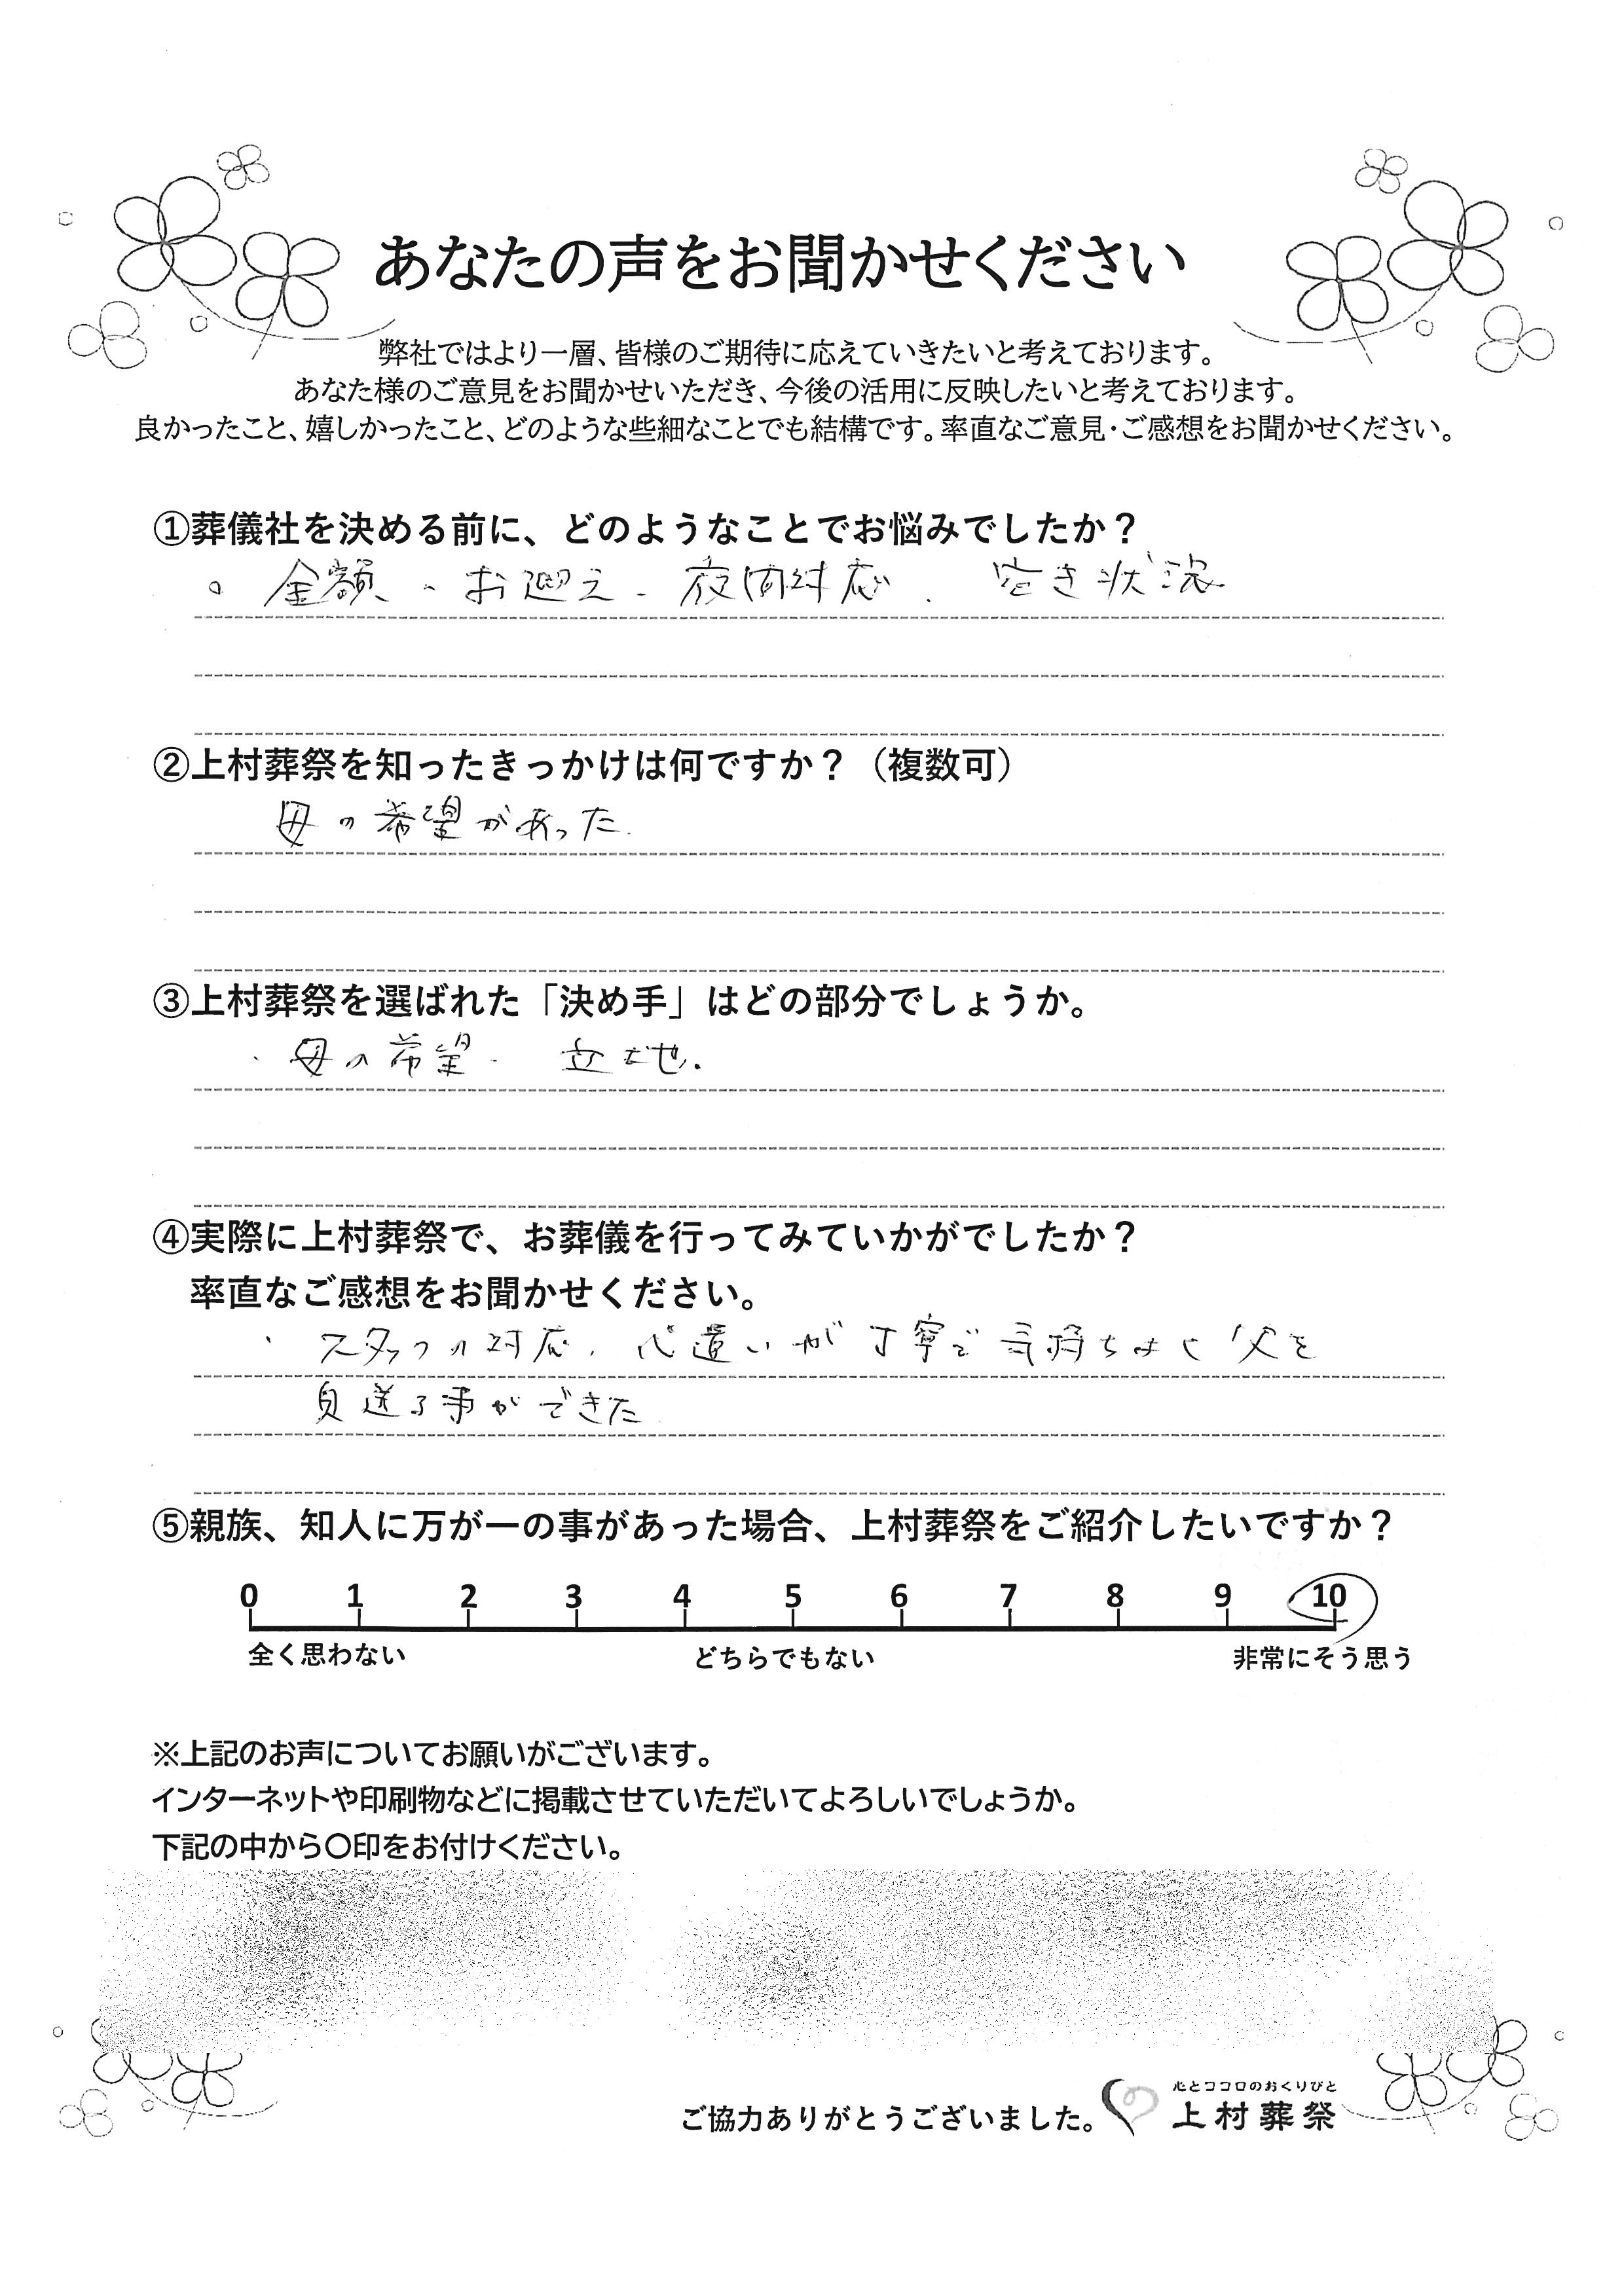 あなたの声をお聞かせください
弊社ではより一層、皆様のご期待に応えていきたいと考えております。
あなた様のご意見をお聞かせいただき、今後の活用に反映したいと考えております。
良かったこと、嬉しかったこと、どのような些細なことでも結構です。率直なご意見・ご感想をお聞かせください。
①葬儀社を決める前に、どのようなことでお悩みでしたか？
。金額、お迎え、夜間対応、空き状況
②上村葬祭を知ったきっかけは何ですか？（複数可）
母の希望があった.
③上村葬祭を選ばれた「決め手」はどの部分でしょうか。
・母の希望・立地.
④実際に上村葬祭で、お葬儀を行ってみていかがでしたか？
率直なご感想をお聞かせください。
・スタッフの対応、心遣いが丁寧で気持ちよく父を
見送る事ができた
⑤親族、知人に万が一の事があった場合、上村葬祭をご紹介したいですか？
0 1 2 3 4 5 6 7 8 9 10
全く思わない どちらでもない 非常にそう思う
※上記のお声についてお願いがございます。
インターネットや印刷物などに掲載させていただいてよろしいでしょうか。
下記の中から〇印をお付けください。
心とココロのおくりびと
ご協力ありがとうございました。上村葬祭